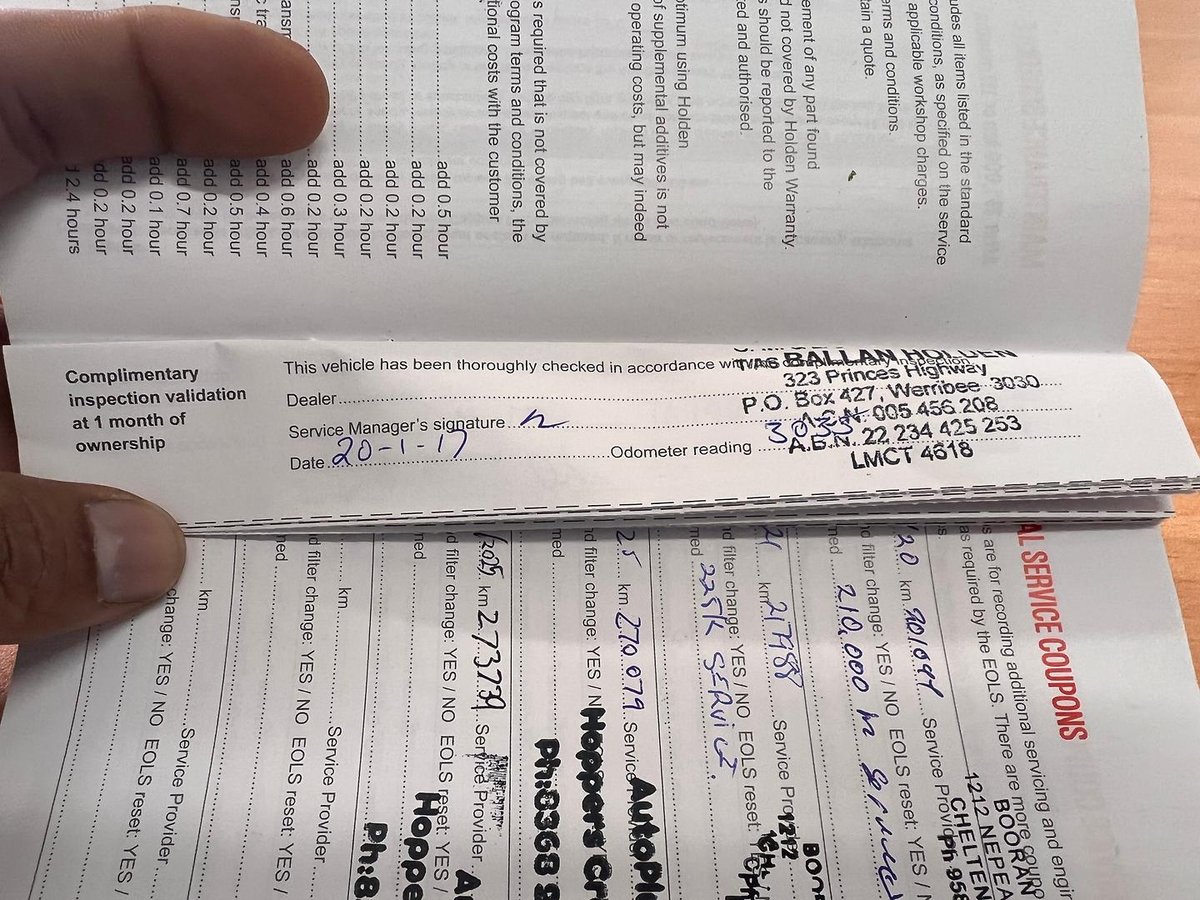 udes all items listed in the standard
conditions, as specified on the service
applicable workshop charges.
erms and conditions.
tain a quote.
ement of any part found
d not covered by Holden Warranty.
s should be reported to the
ed and authorised.
ptimum using Holden
of supplemental additives is not
operating costs, but may indeed
s required that is not covered by
ogram terms and conditions, the
tional costs with the customer
add 0.5 hour
add 0.2 hour
add 0.2 hour
add 0.2 hour
add 0.3 hour
add 0.2 hour
add 0.6 hour
add 0.4 hour
add 0.5 hour
add 0.2 hour
add 0.7 hour
add 0.1 hour
add 0.2 hour
dd 0.2 hour
12.4 hours
Complimentary
inspection validation
at 1 month of
ownership
This vehicle has been thoroughly checked in accordance with
Dealer
Service Manager's signature
Date 20-1-17 Odometer reading
BALLAN HOLDEN
323 Princes Highway
P.O. Box 427, Werribee 3030
A.C.N. 005 456 208
A.B.N. 22 234 425 253
LMCT 4618
AL SERVICE COUPONS
s are for recording additional servicing and engin
as required by the EOLS. There are more coupo
BOORAN
1212 NEPEA
CHELTEN
Ph 958
20 km Service Provid
d filter change: YES / NO EOLS reset: YES / N
med 210,000 km
21 km 217988 Service Pro
d filter change: YES / NO EOLS reset: Y
med 225K SERVICE.
1212
25 km 270.079 Service
d filter change: YES / N
med
AutoPl
Hoppers Cr
Ph:8368
2025 km 273739 Service Provider
d filter change: YES / NO EOLS reset: YES /
med
Hoppe
Ph:8
km Service Provider
d filter change: YES / NO EOLS reset: YES /
med
km Service Provider
change: YES / NO EOLS reset: YES /